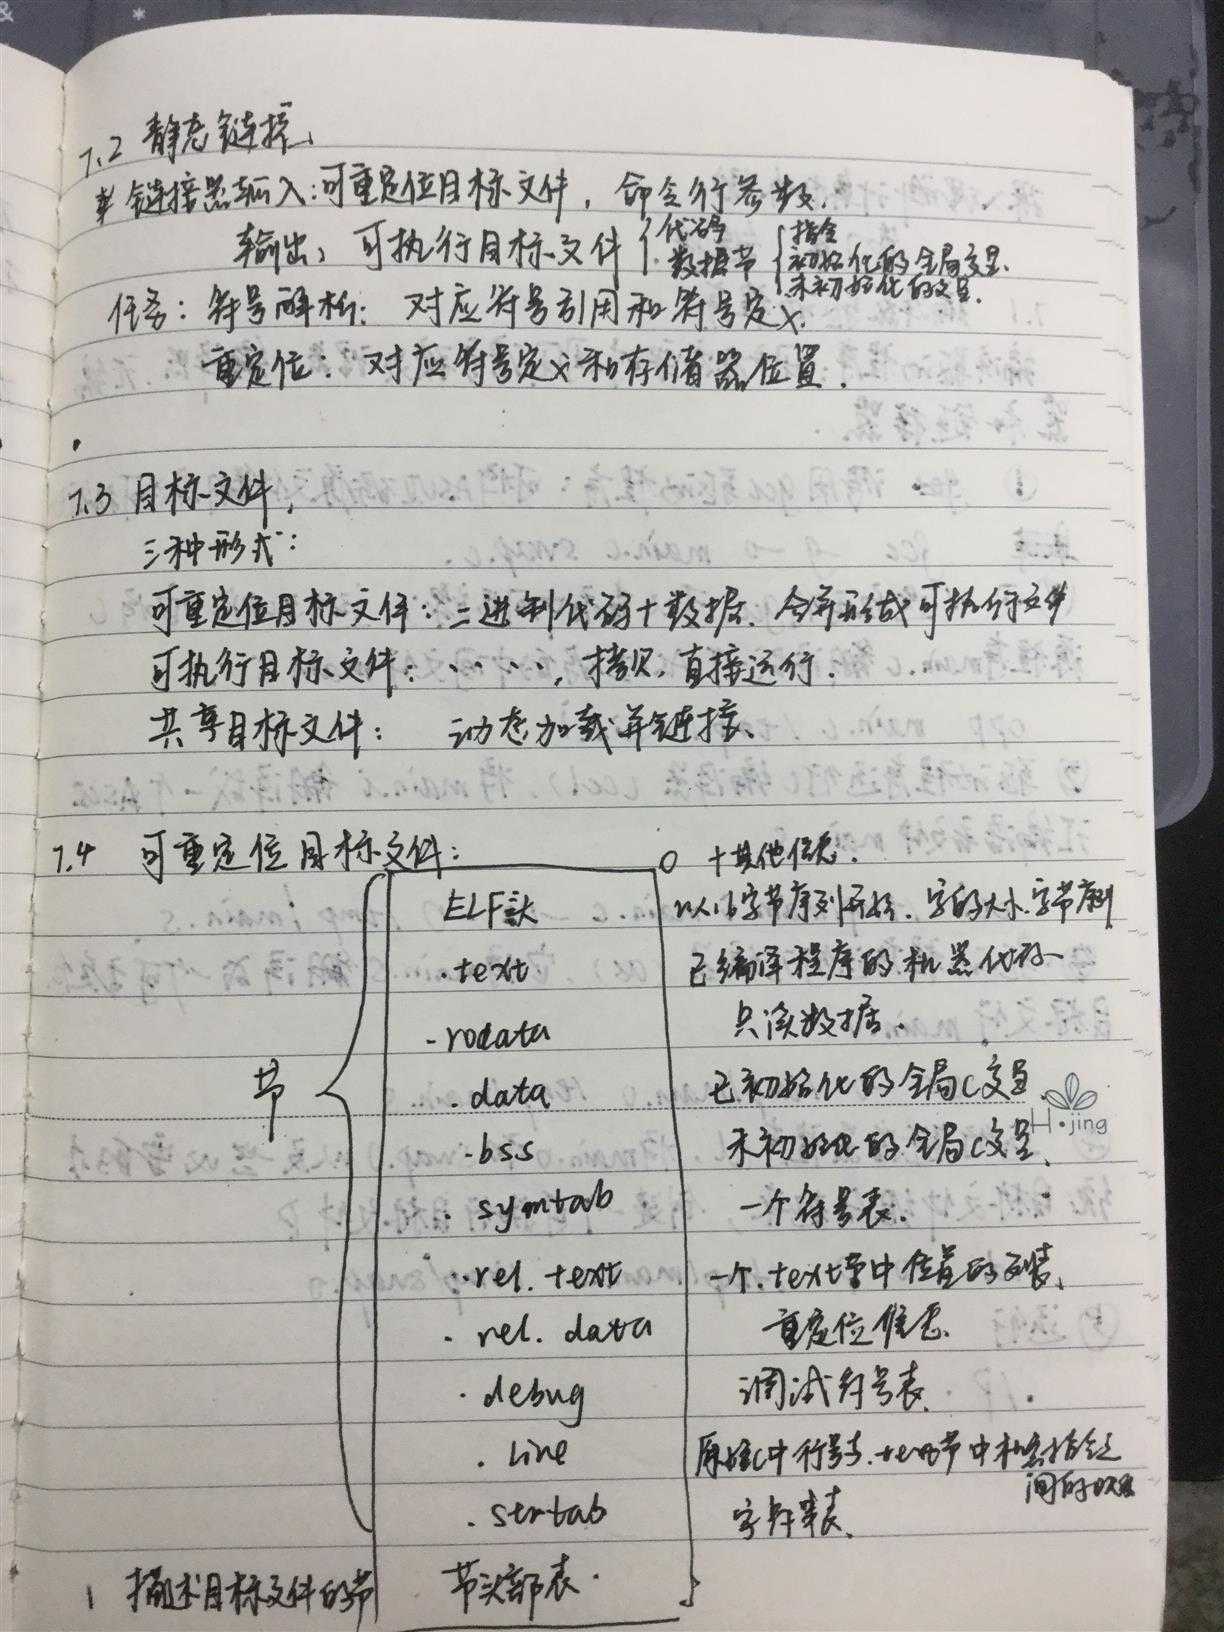 7.2 静态链接
# 链接器输入:可重定位目标文件，命令行参数.
输出: 可执行目标文件 { 代码 数据节 { 指令
初始化的全局变量.
未初始化的变量.
任务: 符号解析: 对应符号引用和符号定义.
重定位: 对应符号定义和存储器位置.
7.3 目标文件.
三种形式:
可重定位目标文件: 二进制代码+数据. 合并形成可执行文件
可执行目标文件: ····, 拷贝, 直接运行.
共享目标文件: 动态加载并链接.
7.4 可重定位目标文件:
0 +其他信息.
ELF头 以16字节序列开始. 字的大小.字节顺序
.text 已编译程序的机器代码
.rodata 只读数据.
节
.data 已初始化的全局C变量.
H·jing
.bss 未初始化的全局C变量.
.symtab 一个符号表.
.rel.text 一个.text节中位置的列表.
.rel.data 重定位信息.
.debug 调试符号表.
.line 原始C中行号与.text节中机器指令之
间的映射
.strtab 字符串表.
描述目标文件的节 节头部表.